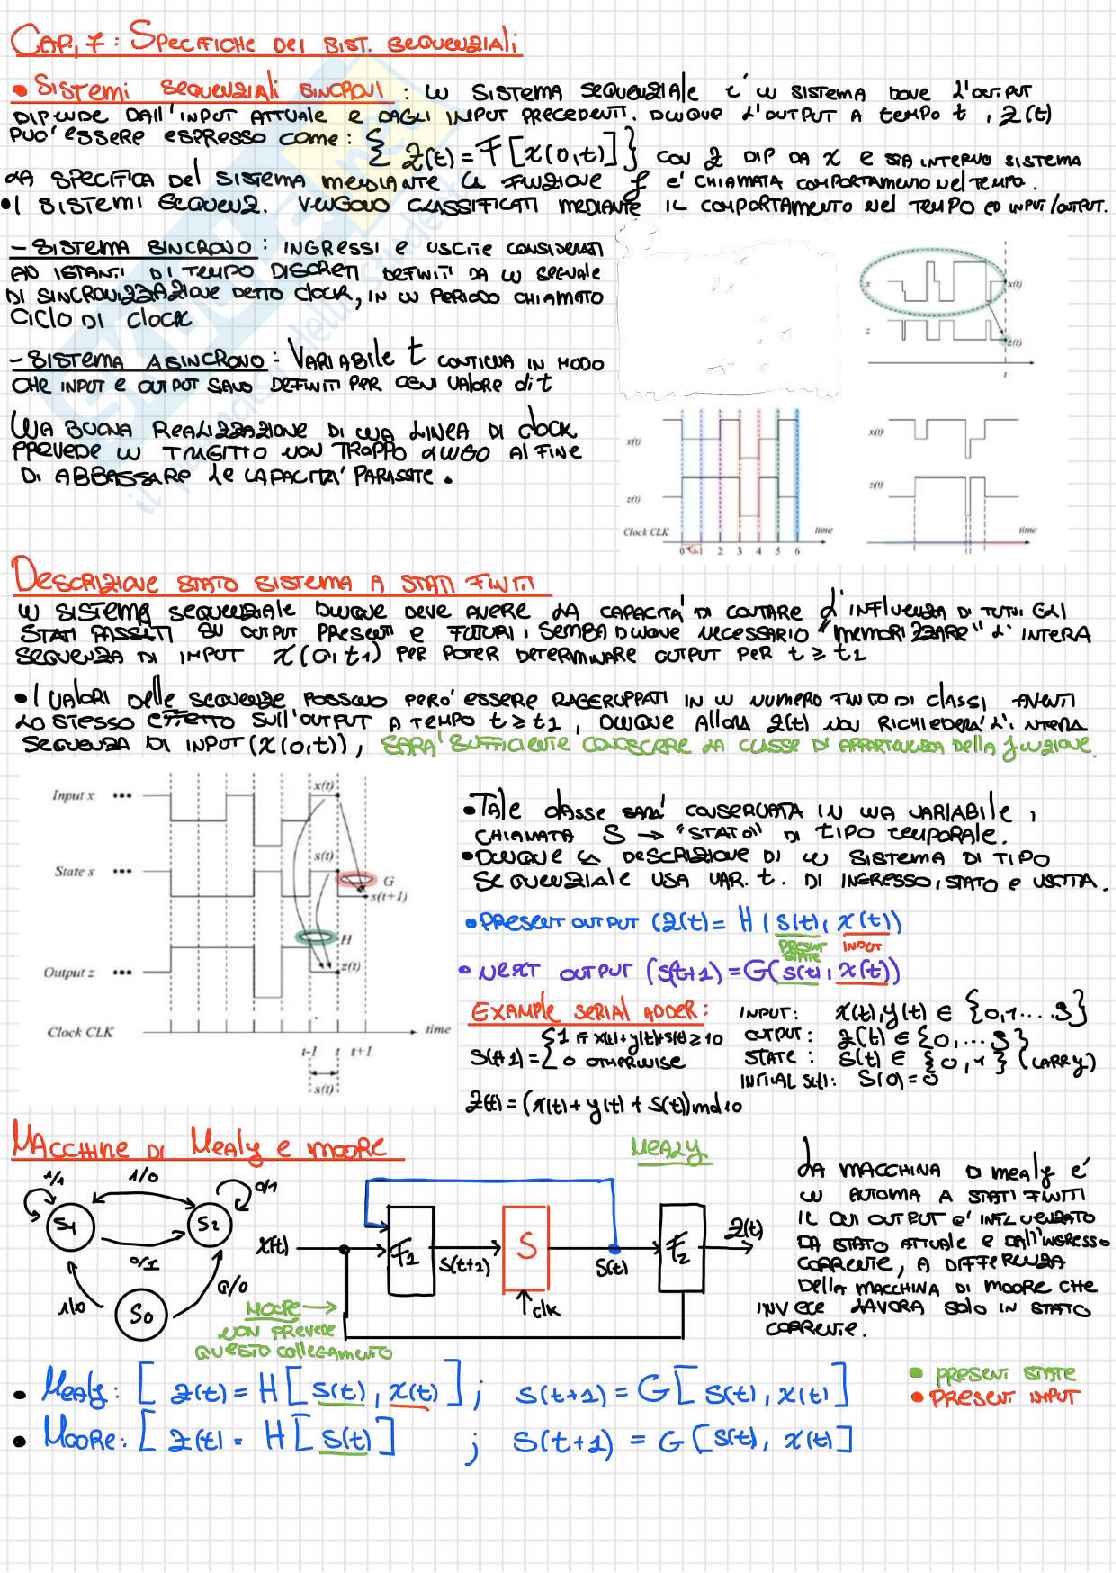 CAP. 7 : SPECIFICHE DEI SIST. SEQUENZIALI
• SISTEMI SEQUENZIALI SINCRONI : UN SISTEMA SEQUENZIALE È UN SISTEMA DOVE L'OUTPUT
DIPENDE DALL'INPUT ATTUALE E DAGLI INPUT PRECEDENTI. DUNQUE L'OUTPUT A TEMPO t , z(t)
PUO' ESSERE ESPRESSO COME : { z(t) = F [x(0,t)] } CON z DIP DA x E SIA INTERVO SISTEMA
LA SPECIFICA DEL SISTEMA MEDIANTE LA FUNZIONE f E' CHIAMATA COMPORTAMENTO NEL TEMPO.
• I SISTEMI SEQUENZ. VENGONO CLASSIFICATI MEDIANTE IL COMPORTAMENTO NEL TEMPO ED INPUT/OUTPUT.
- SISTEMA SINCRONO : INGRESSI E USCITE CONSIDERATI
AD ISTANTI DI TEMPO DISCRETI DEFINITI DA UN SEGNALE
DI SINCRONIZZAZIONE DETTO CLOCK, IN UN PERIODO CHIAMATO
CICLO DI CLOCK
- SISTEMA ASINCRONO : VARIABILE t CONTINUA IN MODO
CHE INPUT E OUTPUT SANO DEFINITI PER OGNI VALORE di t
UNA BUONA REALIZZAZIONE DI UNA LINEA DI CLOCK
PREVEDE UN TRAGITTO NON TROPPO LUNGO AL FINE
DI ABBASSARE LE CAPACITA' PARASSITE .
x x(t)
z z(t)
t
x(t)
z(t)
Clock CLK time
0 1 2 3 4 5 6
x(t)
z(t)
time
DESCRIZIONE STATO SISTEMA A STATI FINITI
UN SISTEMA SEQUENZIALE DUNQUE DEVE AVERE LA CAPACITA' DI CONTARE L'INFLUENZA DI TUTTI GLI
STATI PASSATI SU OUTPUT PRESENTI E FUTURI, SEMBRA DUNQUE NECESSARIO "MEMORIZZARE" L'INTERA
SEQUENZA DI INPUT x(0,t1) PER POTER DETERMINARE OUTPUT PER t ≥ t1
• I VALORI DELLE SEQUENZE POSSONO PERO' ESSERE RAGGRUPPATI IN UN NUMERO FINITO DI CLASSI AVENTI
LO STESSO EFFETTO SULL'OUTPUT A TEMPO t ≥ t1 , DUNQUE ALLORA z(t) NON RICHIEDERA' L'INTERA
SEQUENZA DI INPUT (x(0,t)), SARA' SUFFICIENTE CONOSCERE LA CLASSE DI APPARTENENZA DELLA FUNZIONE.
Input x •••
x(t)
State s •••
s(t)
G
s(t+1)
H
Output z •••
z(t)
Clock CLK time
t-1 t t+1
s(t)
• TALE CLASSE SARA' CONSERVATA IN UNA VARIABILE ,
CHIAMATA S → "STATO" DI TIPO TEMPORALE.
• DUNQUE LA DESCRIZIONE DI UN SISTEMA DI TIPO
SEQUENZIALE USA VAR. t. DI INGRESSO, STATO E USCITA.
• PRESENT OUTPUT (z(t) = H ( s(t), x(t))
PRESENT STATE INPUT
• NEXT OUTPUT (s(t+1) = G( s(t), x(t))
EXAMPLE SERIAL ADDER : INPUT: x(t), y(t) ∈ {0,1....9}
S(t+1) = { 1 IF x(t) + y(t) + s(t) ≥ 10 OUTPUT: z(t) ∈ {0,...9}
0 OTHERWISE STATE : S(t) ∈ {0,1} (CARRY)
INITIAL S(t): S(0) = 0
z(t) = (x(t) + y(t) + s(t)) mod 10
MACCHINE DI MEALY E MOORE
MEALY
1/1 1/0 0/1
S1 S2
0/1
1/0 0/0
S0
x(t) F1 S(t+1) S S(t) F2 z(t)
clk
MOORE →
NON PREVEDE
QUESTO COLLEGAMENTO
LA MACCHINA DI MEALY E'
UN AUTOMA A STATI FINITI
IL CUI OUTPUT E' INFLUENZATO
DA STATO ATTUALE E DALL'INGRESSO
CORRENTE, A DIFFERENZA
DELLA MACCHINA DI MOORE CHE
INVECE LAVORA SOLO IN STATO
CORRENTE.
• MEALY: [ z(t) = H [ s(t), x(t) ] ; s(t+1) = G [ s(t), x(t) ]
• MOORE: [ z(t) = H [ s(t) ] ; s(t+1) = G [ s(t), x(t) ]
• PRESENT STATE
• PRESENT INPUT